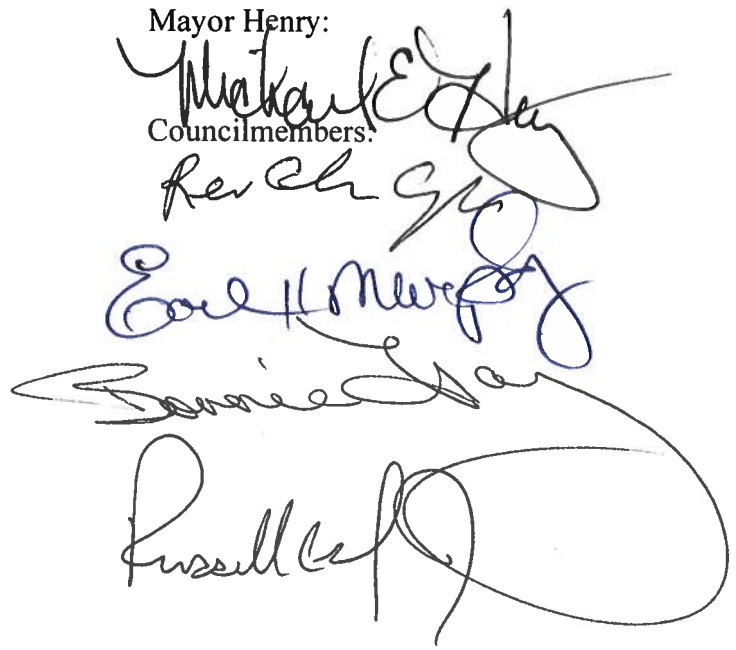 Mayor Henry:
Michael E. Henry
Councilmembers:
Rev
Earl H Murphy
Bonnie
Russell